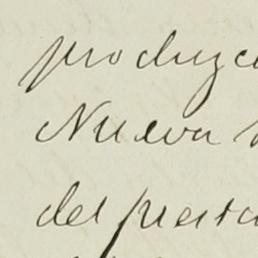 produzca
Nueva
del presta